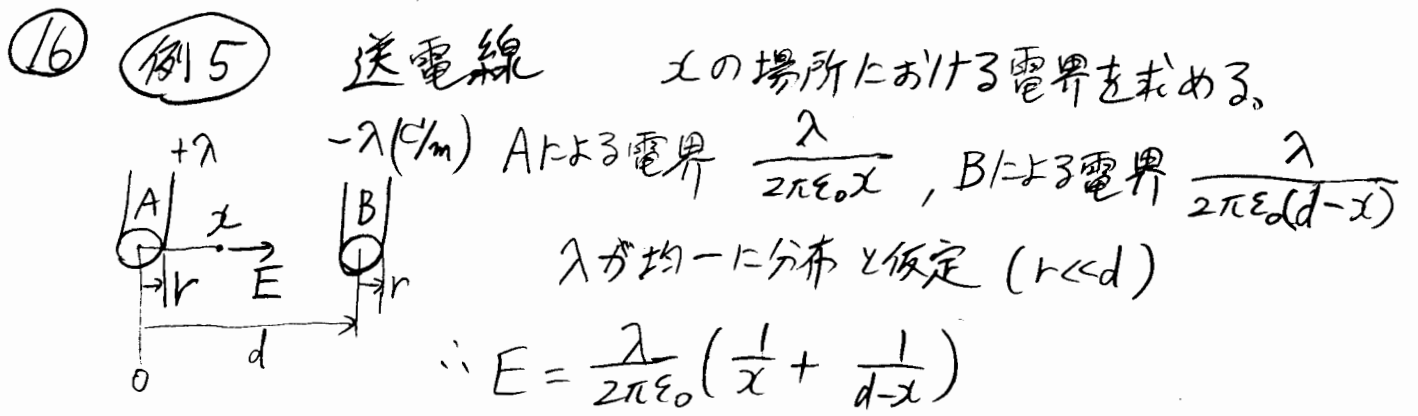 ⑯ 例5 送電線 xの場所における電界を求める。
+λ -λ(C/m) Aによる電界 λ/(2πε₀x) , Bによる電界 λ/(2πε₀(d-x))
A x B
λが均一に分布と仮定 (r<<d)
r E r
d
0
∴ E = λ/(2πε₀) (1/x + 1/(d-x))